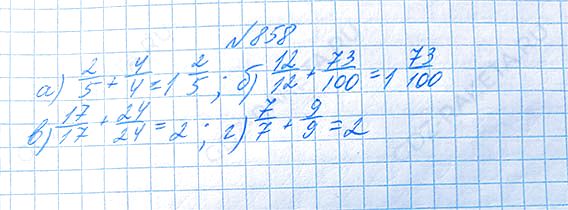 №858
а) 2/5 + 4/4 = 1 2/5; б) 12/12 + 73/100 = 1 73/100
в) 17/17 + 24/24 = 2; г) 7/7 + 9/9 = 2